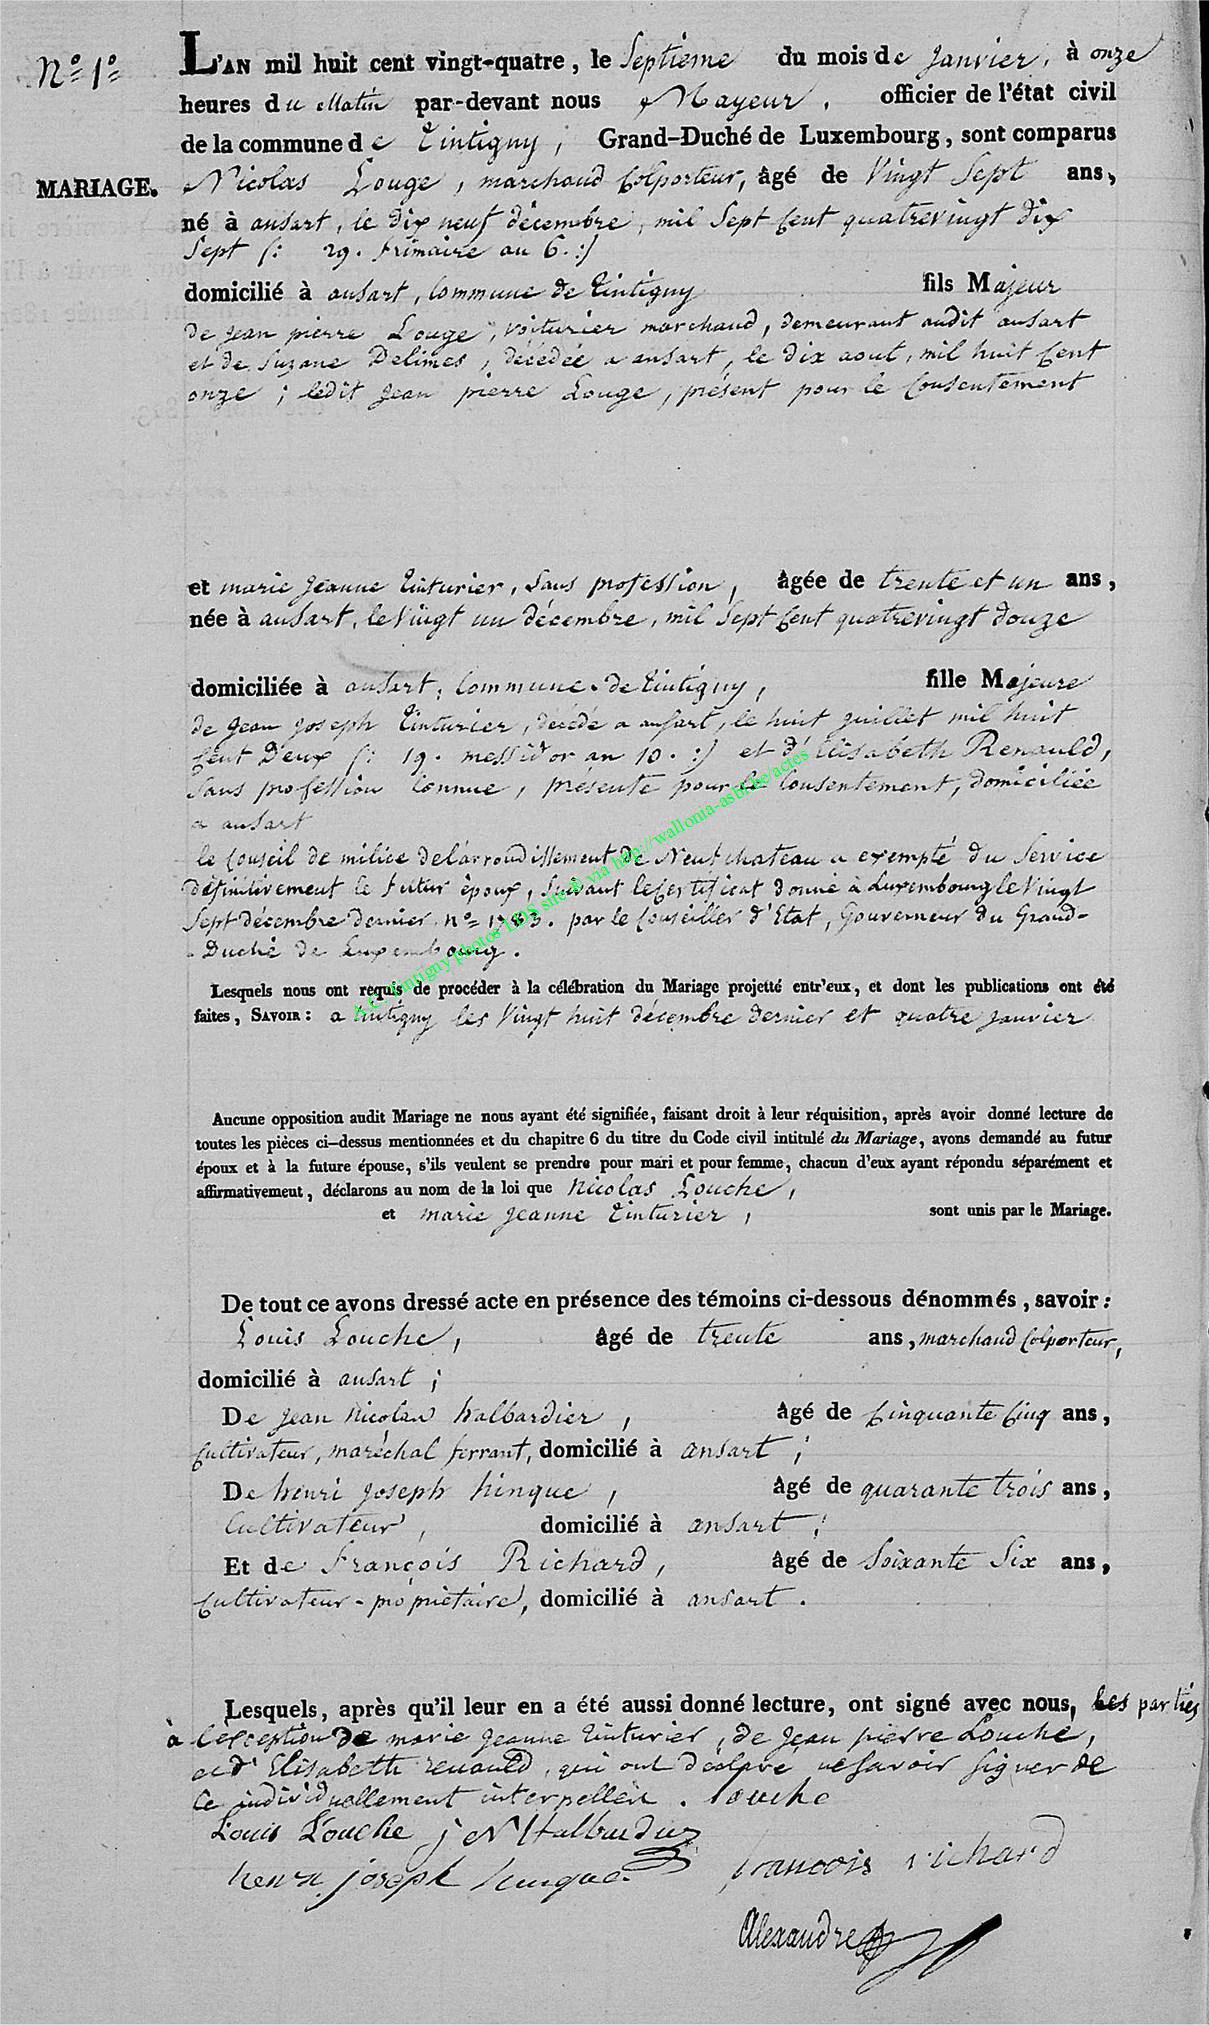 N.º 1.º
L'AN mil huit cent vingt-quatre, le Septieme du mois de Janvier, à onze
heures du Matin par-devant nous Mayeur, officier de l'état civil
de la commune de Tintigny, Grand-Duché de Luxembourg, sont comparus
MARIAGE. Nicolas Louge, marchand Colporteur, âgé de Vingt Sept ans,
né à ansart, le dix neuf décembre, mil Sept Cent quatrevingt dix
Sept (: 29. frimaire an 6. :)
domicilié à ansart, Commune de Tintigny fils Majeur
de jean pierre Louge, voiturier marchand, demeurant audit ansart
et de Suzane Delimes, décédée a ansart, le dix aout, mil huit Cent
onze ; ledit jean pierre Louge, présent pour le Consentement
et marie jeanne Tinturier, Sans profession, âgée de trente et un ans,
née à ansart, le Vingt un décembre, mil Sept Cent quatrevingt douze
domiciliée à ansart, Commune de Tintigny, fille Majeure
de jean joseph Tinturier, décédé a ansart, le huit juillet mil huit
Cent Deux (: 19. messidor an 10. :) et d'Elisabeth Renauld,
Sans profession Connue, présente pour le Consentement, domiciliée
a ansart
le Conseil de milice de l'arrondissement de Neufchateau a exempté du Service
définitivement le futur époux, Suivant le Certificat donné à Luxembourg le Vingt
Sept décembre dernier n.º 1783. par le Conseiller d'Etat, Gouverneur du Grand-
-Duché de Luxembourg.
A.C. Tintigny photos LDS site © via http://wallonia-asbl.be/actes
Lesquels nous ont requis de procéder à la célébration du Mariage projetté entr'eux, et dont les publications ont été
faites, SAVOIR : a Tintigny les Vingt huit décembre dernier et quatre janvier
Aucune opposition audit Mariage ne nous ayant été signifiée, faisant droit à leur réquisition, après avoir donné lecture de
toutes les pièces ci-dessus mentionnées et du chapitre 6 du titre du Code civil intitulé du Mariage, avons demandé au futur
époux et à la future épouse, s'ils veulent se prendre pour mari et pour femme, chacun d'eux ayant répondu séparément et
affirmativement, déclarons au nom de la loi que Nicolas Louche,
et marie jeanne Tinturier, sont unis par le Mariage.
De tout ce avons dressé acte en présence des témoins ci-dessous dénommés, savoir :
Louis Louche, âgé de trente ans, marchand Colporteur,
domicilié à ansart ;
De jean Nicolas halbardier, âgé de Cinquante Cinq ans,
Cultivateur, maréchal ferrant, domicilié à ansart ;
De henri joseph hinque, âgé de quarante trois ans,
Cultivateur, domicilié à ansart ;
Et de François Richard, âgé de Soixante Six ans,
Cultivateur-propriétaire, domicilié à ansart.
Lesquels, après qu'il leur en a été aussi donné lecture, ont signé avec nous, les parties
à l'éxception de marie jeanne Tinturier, de jean pierre Louche,
et d'Elisabeth renauld, qui ont déclaré ne Savoir Signer de
Ce individuellement interpellés. Louche
Louis Louche j N Halbardier
henri joseph hinque françois richard
Alexandre